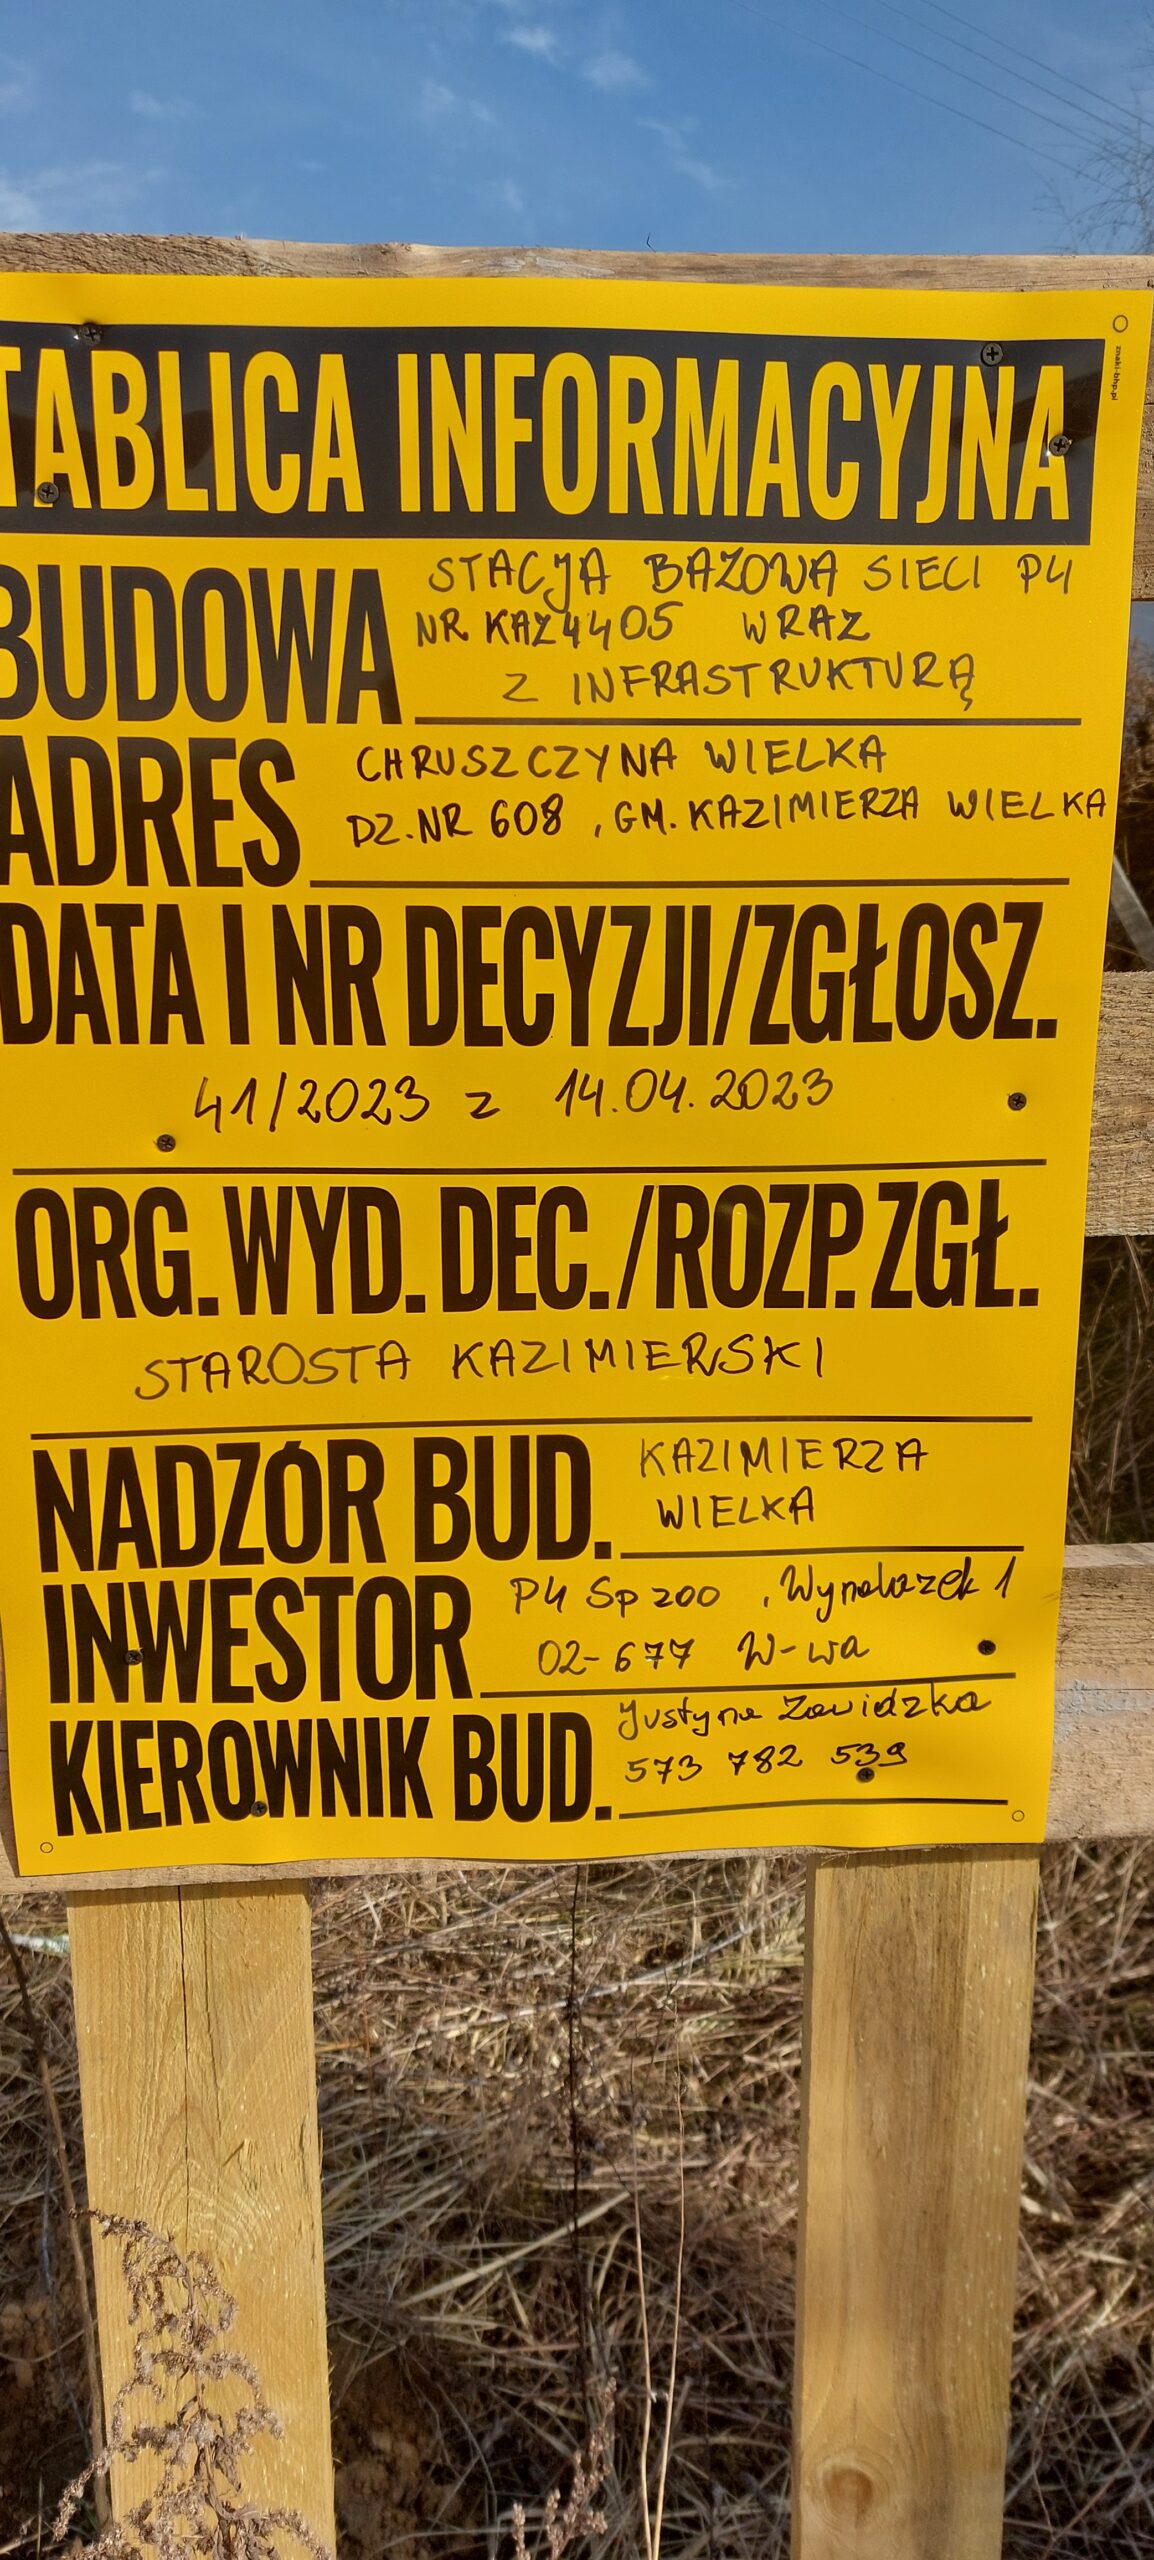 TABLICA INFORMACYJNA
znaki-bhp.pl
BUDOWA STACJA BAZOWA SIECI P4
NR KAZ4405 WRAZ
Z INFRASTRUKTURĄ
ADRES CHRUSZCZYNA WIELKA
DZ.NR 608, GM. KAZIMIERZA WIELKA
DATA I NR DECYZJI/ZGŁOSZ.
41/2023 z 14.04.2023
ORG. WYD. DEC./ROZP. ZGŁ.
STAROSTA KAZIMIERSKI
NADZÓR BUD. KAZIMIERZA
WIELKA
INWESTOR P4 Sp zoo, Wynalazek 1
02-677 W-wa
KIEROWNIK BUD. Justyna Zawidzka
573 782 539